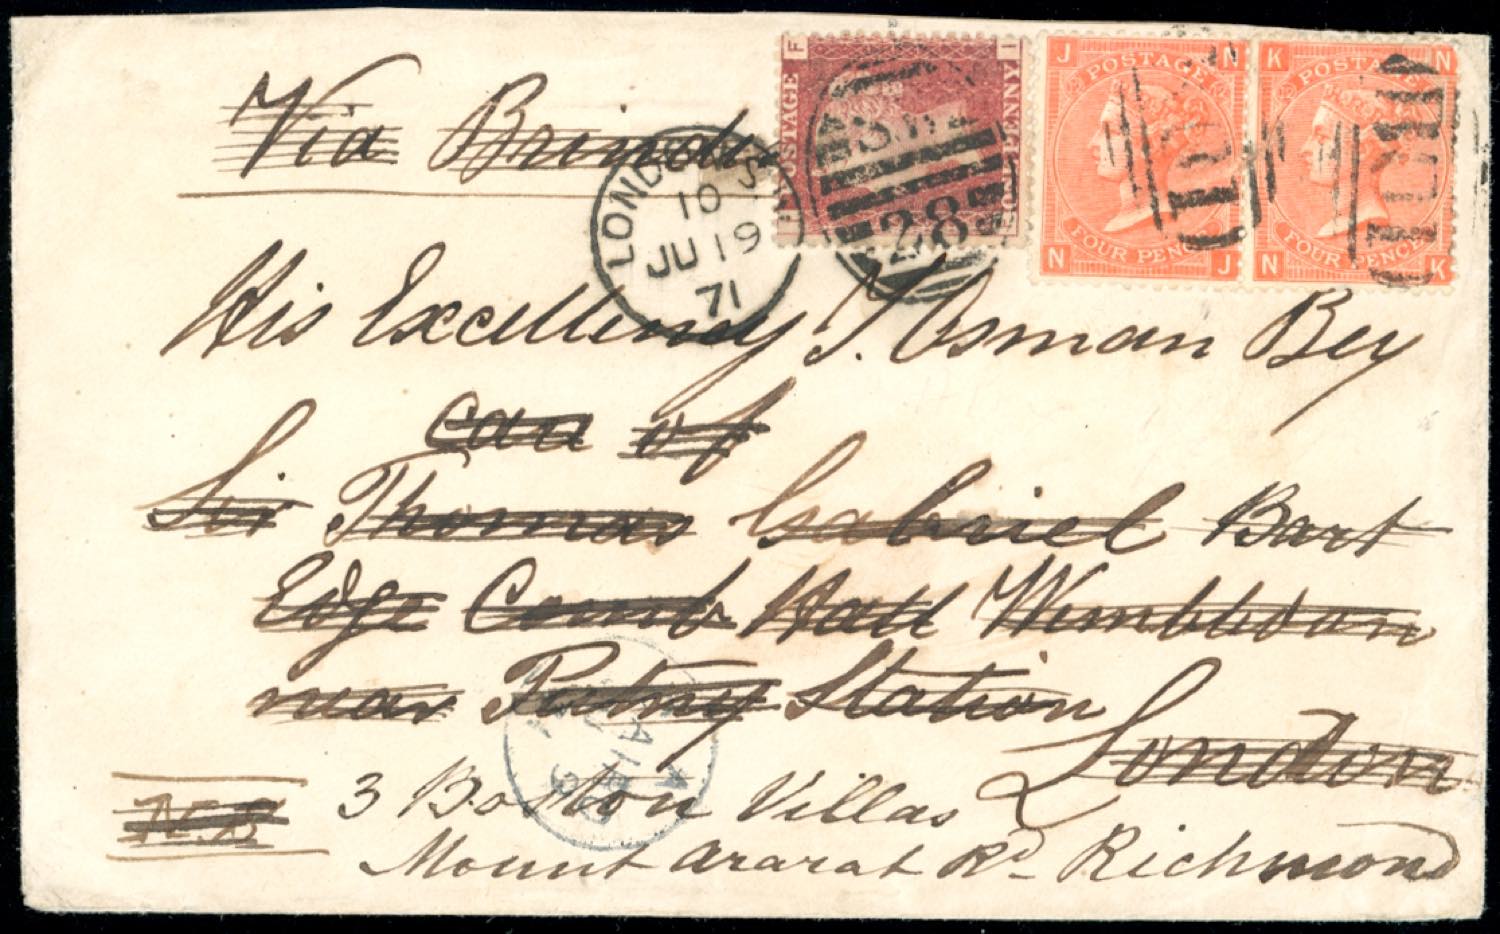 Via
F I
POSTAGE ONE PENNY
S.W.
28
J N
POSTAGE
FOUR PENCE
N J
K N
POSTAGE
FOUR PENCE
N K
LONDON
10 S
JU 19
71
His Excellency Y. Osman Bey
Care of
Sir Thomas Gabriel Bart
Edge Comb Hall Wimbledon
near Putny Station
London
3 Boston Villas
Mount Ararat Rd Richmond